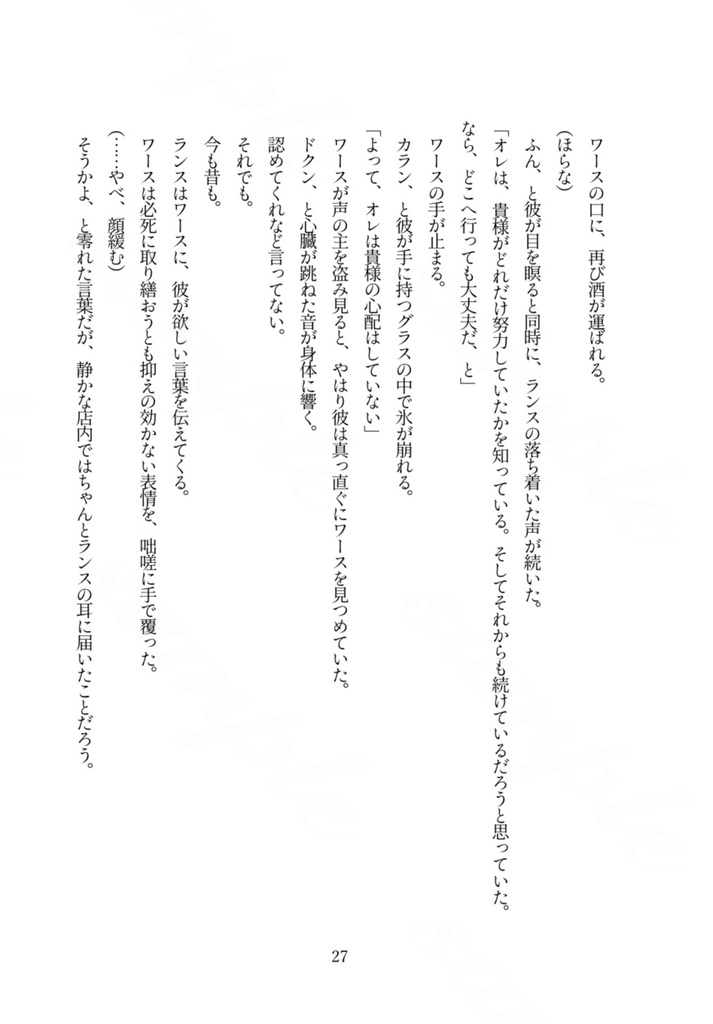 ワースの口に、再び酒が運ばれる。
(ほらな)
ふん、と彼が目を瞑ると同時に、ランスの落ち着いた声が続いた。
「オレは、貴様がどれだけ努力していたかを知っている。そしてそれからも続けているだろうと思っていた。
なら、どこへ行っても大丈夫だ、と」
ワースの手が止まる。
カラン、と彼が手に持つグラスの中で氷が崩れる。
「よって、オレは貴様の心配はしていない」
ワースが声の主を盗み見ると、やはり彼は真っ直ぐにワースを見つめていた。
ドクン、と心臓が跳ねた音が身体に響く。
認めてくれなど言ってない。
それでも。
今も昔も。
ランスはワースに、彼が欲しい言葉を伝えてくる。
ワースは必死に取り繕おうとも抑えの効かない表情を、咄嗟に手で覆った。
(……やべ、顔緩む)
そうかよ、と零れた言葉だが、静かな店内ではちゃんとランスの耳に届いたことだろう。
27
sample
sample
sample
sample
sample